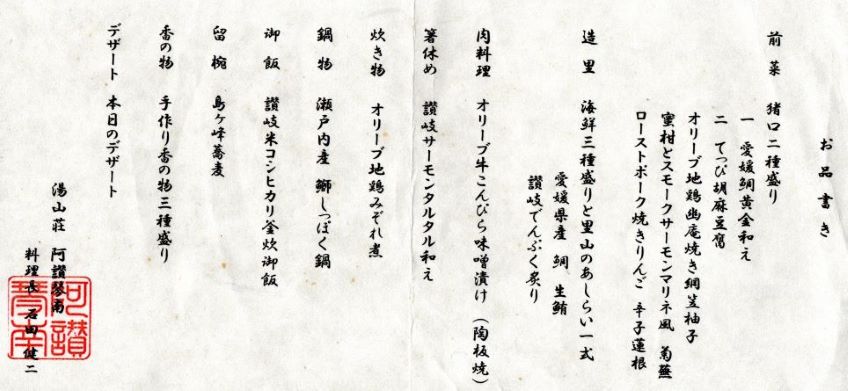 お品書き
前菜 猪口二種盛り
一 愛媛鯛黄金和え
二 てっぴ胡麻豆腐
オリーブ地鶏幽庵焼き 網笠柚子
蜜柑とスモークサーモンマリネ風 菊蕪
ローストポーク焼きりんご 辛子蓮根
造里 海鮮三種盛りと里山のあしらい一式
愛媛県産 鯛 生鮪
讃岐でんぶく炙り
肉料理 オリーブ牛こんぴら味噌漬け (陶板焼)
箸休め 讃岐サーモンタルタル和え
炊き物 オリーブ地鶏みぞれ煮
鍋物 瀬戸内産 鰤しっぽく鍋
御飯 讃岐米コシヒカリ釜炊御飯
留椀 島ヶ峰蕎麦
香の物 手作り香の物三種盛り
デザート 本日のデザート
湯山荘 阿讃琴南
料理長 石田 健二
阿讃琴南